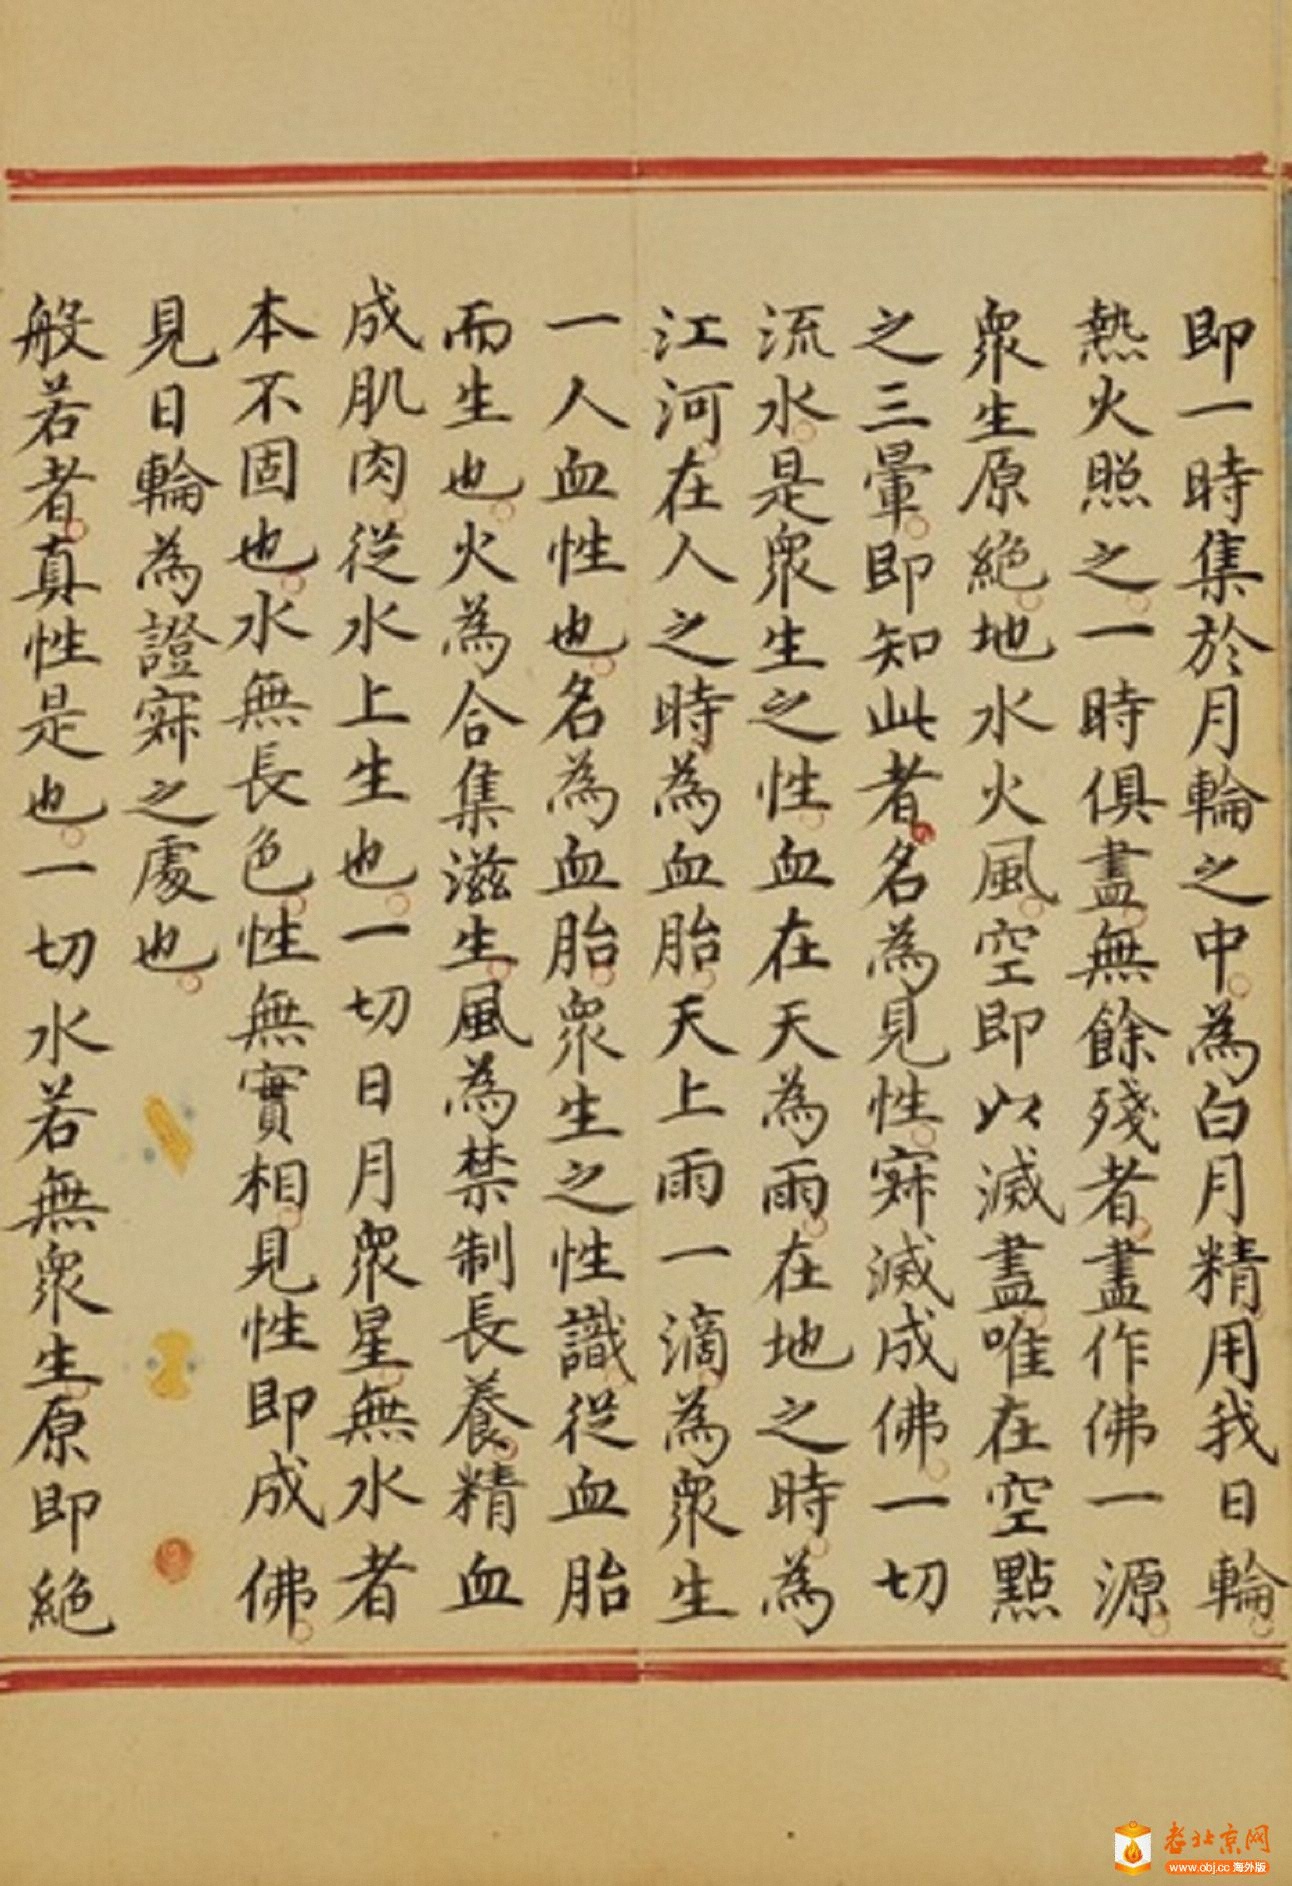 即一時集於月輪之中為白月精用我日輪
熱火照之一時俱盡無餘殘者盡作佛一源
眾生原絕地水火風空即以滅盡唯在空點
之三暈即知此者名為見性寂滅成佛一切
流水是眾生之性血在天為雨在地之時為
江河在人之時為血胎天上雨一滴為眾生
一人血性也名為血胎眾生之性識從血胎
而生也火為合集滋生風為禁制長養精血
成肌肉從水上生也一切日月眾星無水者
本不固也水無長色性無實相見性即成佛
見日輪為證寂之處也
般若者真性是也一切水若無眾生原即絕
老北京网
www.obj.cc 海外版